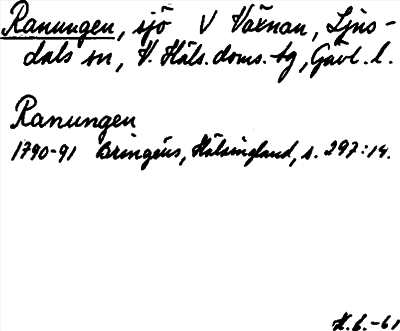 Ranungen, sjö V Växnan, Ljus-
dals sn, V. Häls. doms. bg, Gävl. l.
Ranungen
1790-91 Bringéus, Hälsingland, s. 297:14.
H.b.-61